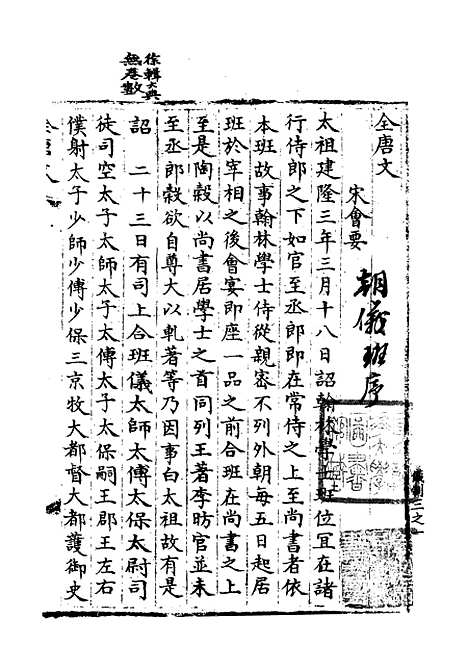 徐輯大典
無卷數
全唐文
宋會要
朝儀班序
太祖建隆三年三月十八日詔翰林學士班位宜在諸
行侍郎之下如官至丞郎即在常侍之上至尚書者依
本班故事翰林學士侍從親密不列外朝每五日起居
班於宰相之後會宴即座一品之前合班在尚書之上
至是陶穀以尚書居學士之首同列王著李昉官並未
至丞郎穀欲自尊大以軋著等乃因事白太祖故有是
詔　二十三日有司上合班儀太師太傅太保太尉司
徒司空太子太師太子太傅太子太保嗣王郡王左右
僕射太子少師少傅少保三京牧大都督大都護御史
儀制三之一